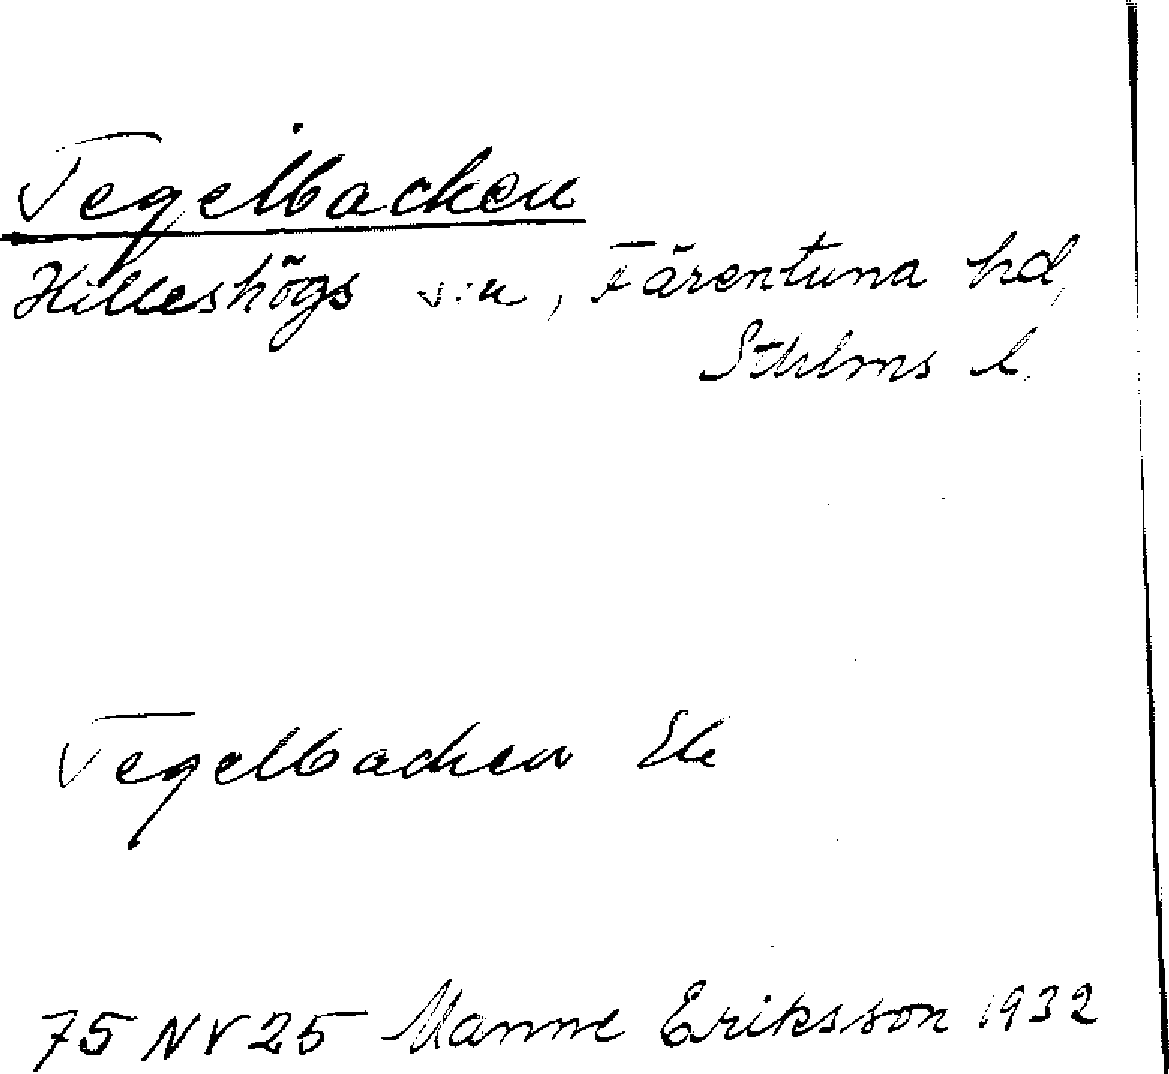 Tegelbacken
Hilleshögs s:n, Färentuna hd,
Sthlms l.
Tegelbacken Ek
75 NV 25 Manne Eriksson 1932